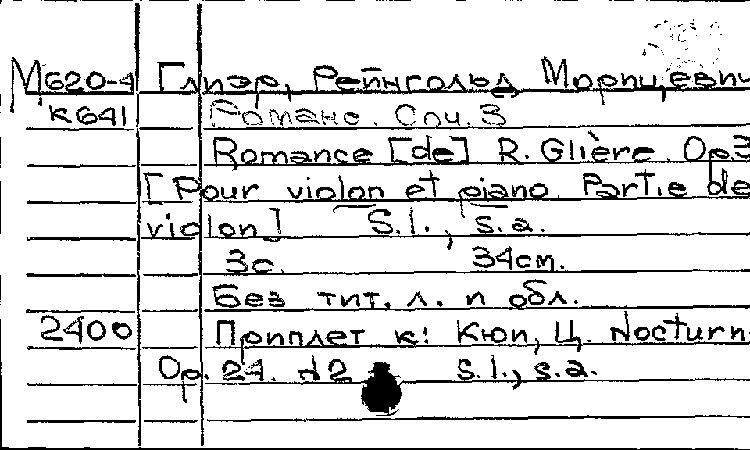 М620-4 Глиэр, Рейнгольд Морицеви
К641 Романс. Соч. 3
Romance [de] R. Glière Op.3
[Pour violon et piano. Partie de
violon] S.l., s.a.
3с. 34см.
Без тит. л. и обл.
2400 Приплет к: Кюи, Ц. Nocturn
Op. 24. N2 S.l., s.a.